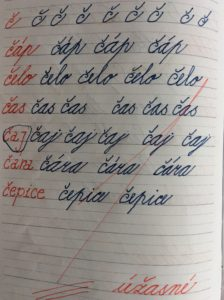 č č č č č č č č
čáp čáp čáp čáp
čelo čelo čelo čelo čelo
čas čas čas čas čas čas
čaj čaj čaj čaj čaj čaj
čára čára čára čára
čepice čepice čepice
úžasné